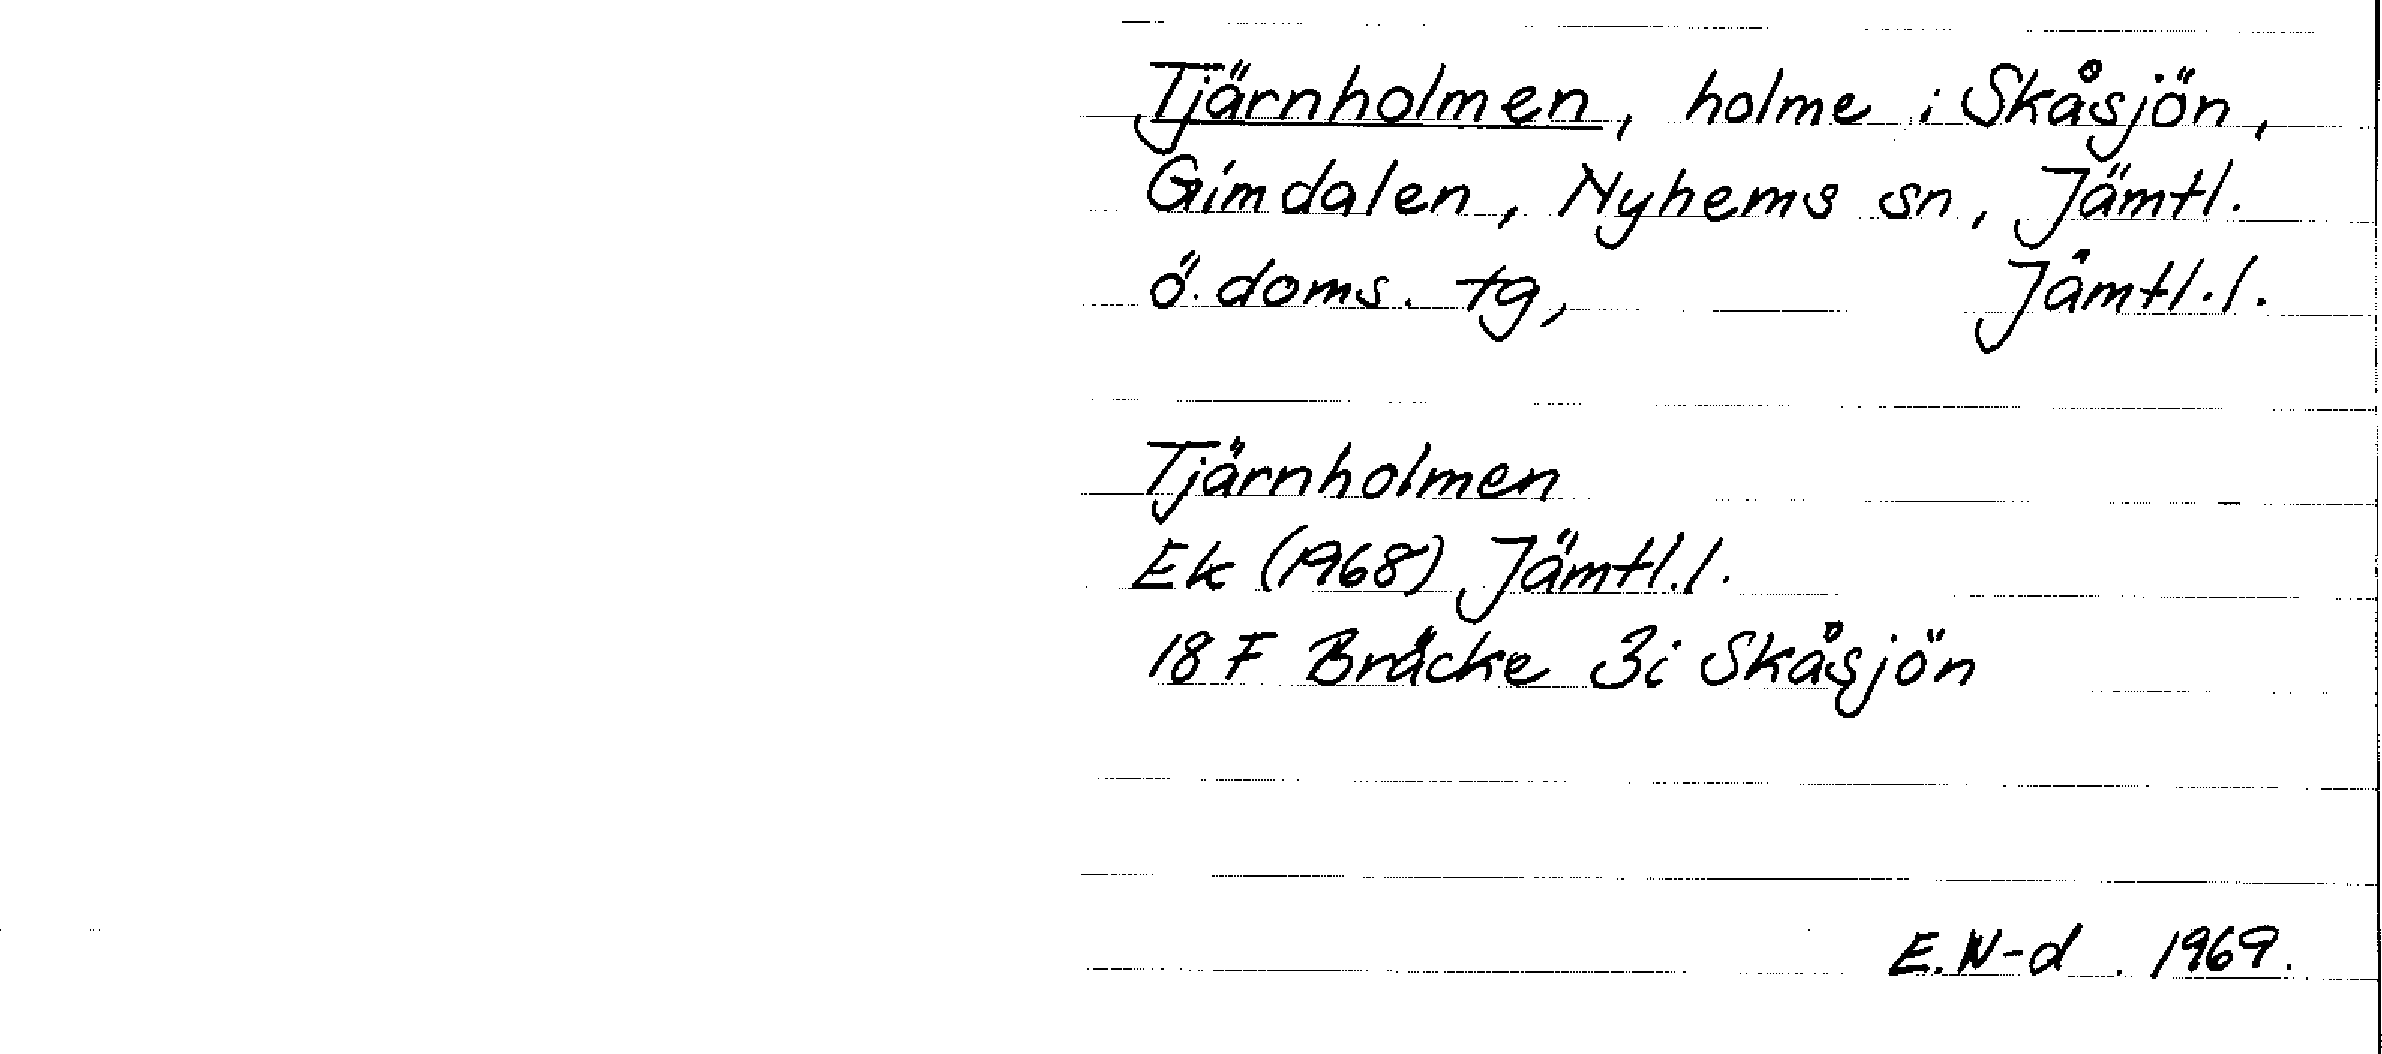 Tjärnholmen, holme i Skåsjön,
Gimdalen, Nyhems sn, Jämtl.
ö. doms. tg, Jämtl.l.
Tjärnholmen
Ek (1968) Jämtl.l.
18 F Bräcke 3i Skåsjön
E.N-d. 1969.